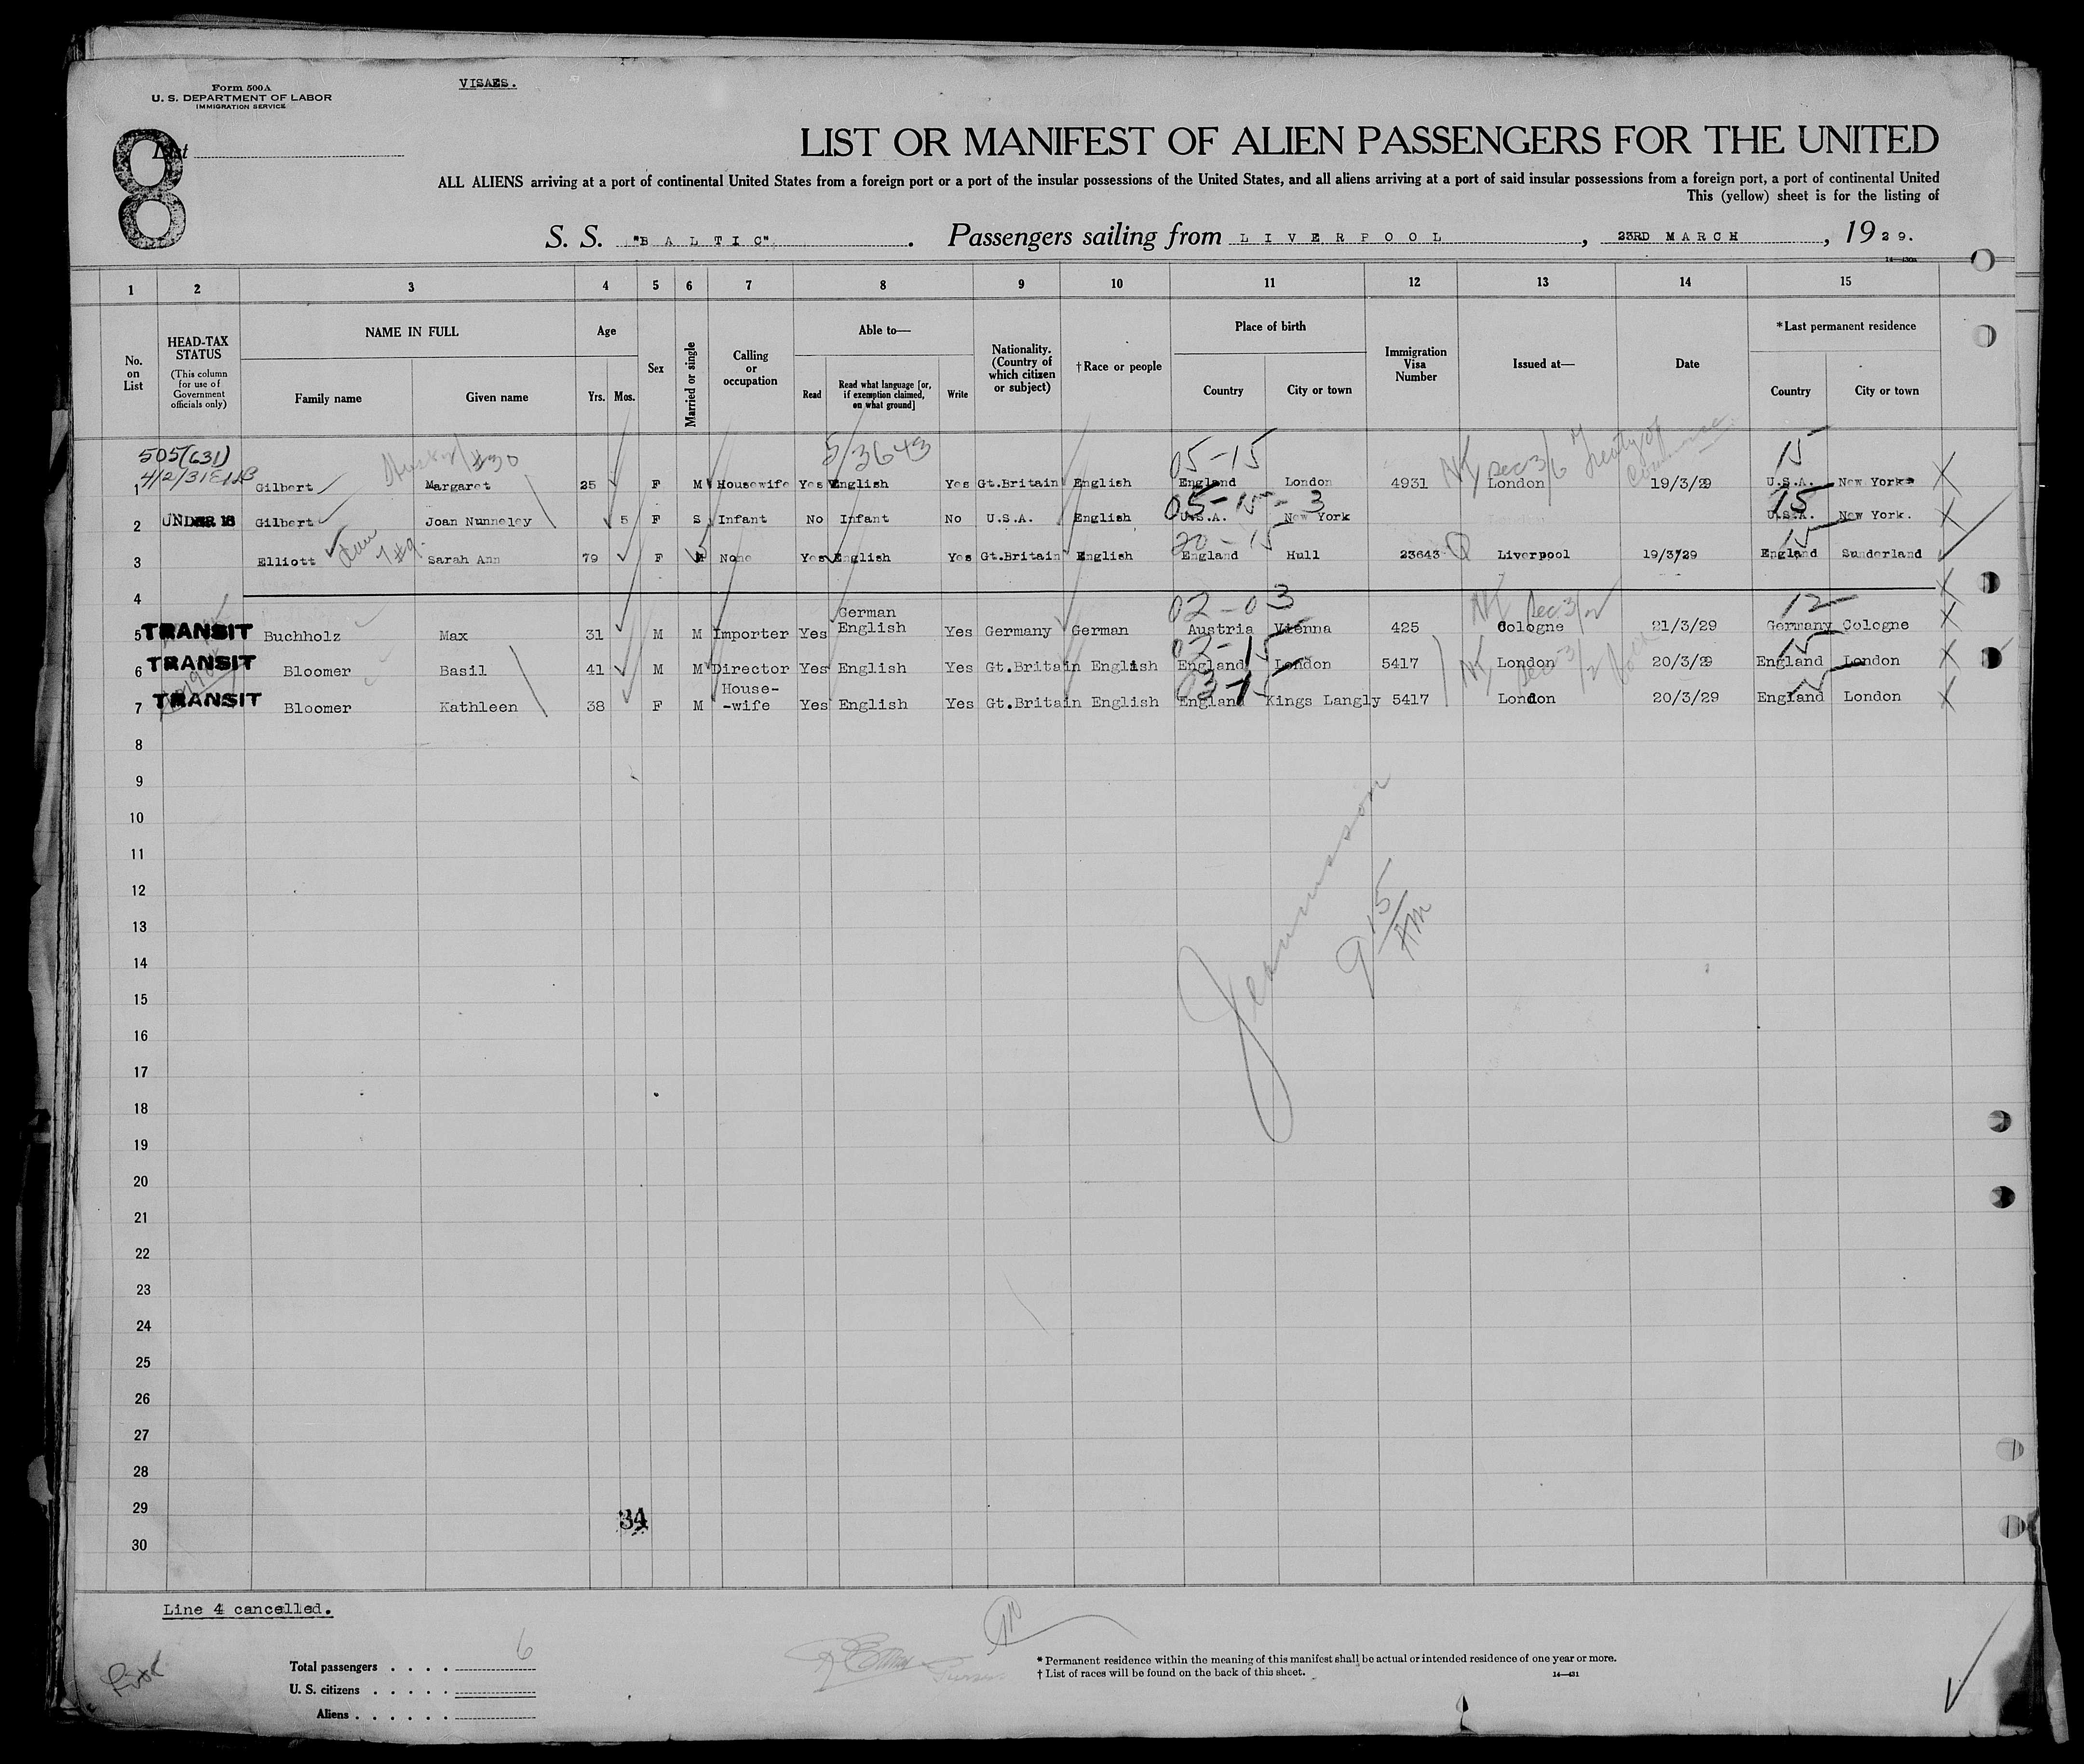 Form 500A
U. S. DEPARTMENT OF LABOR
IMMIGRATION SERVICE
VISAES.
8
List
LIST OR MANIFEST OF ALIEN PASSENGERS FOR THE UNITED
ALL ALIENS arriving at a port of continental United States from a foreign port or a port of the insular possessions of the United States, and all aliens arriving at a port of said insular possessions from a foreign port, a port of continental United
This (yellow) sheet is for the listing of
S. S. "BALTIC". Passengers sailing from LIVERPOOL, 23RD MARCH, 1929.
14—430a
1 2 3 4 5 6 7 8 9 10 11 12 13 14 15
No. on List
HEAD-TAX STATUS (This column for use of Government officials only)
NAME IN FULL
Family name Given name
Age
Yrs. Mos.
Sex
Married or single
Calling or occupation
Able to—
Read Read what language [or, if exemption claimed, on what ground] Write
Nationality. (Country of which citizen or subject)
†Race or people
Place of birth
Country City or town
Immigration Visa Number
Issued at—
Date
*Last permanent residence
Country City or town
505(631) 5/3643 05-15 NY Sec 3/6 Treaty of Commerce 15
1 Gilbert Margaret 25 F M Housewife Yes English Yes Gt.Britain English England London 4931 London 19/3/29 U.S.A. New York
05-15-3 15
2 UNDER 16 Gilbert Joan Nunneley 5 F S Infant No Infant No U.S.A. English U.S.A. New York U.S.A. New York.
20-15 15
3 Elliott Sarah Ann 79 F None Yes English Yes Gt.Britain English England Hull 23643 Q Liverpool 19/3/29 England Sunderland
4
02-03 Sec 3/2 12
5 TRANSIT Buchholz Max 31 M M Importer Yes German English Yes Germany German Austria Vienna 425 Cologne 21/3/29 Germany Cologne
02-15 15
6 TRANSIT Bloomer Basil 41 M M Director Yes English Yes Gt.Britain English England London 5417 London 20/3/29 England London
03-15 15
7 TRANSIT Bloomer Kathleen 38 F M House-wife Yes English Yes Gt.Britain English England Kings Langly 5417 London 20/3/29 England London
8
9
10
11
12
13
14
15
16
17
18
19
20
21
22
23
24
25
26
27
28
29
30
9 15/AM
34
Line 4 cancelled.
Total passengers . . . . 6
U. S. citizens . . . . .
Aliens . . . . . .
* Permanent residence within the meaning of this manifest shall be actual or intended residence of one year or more.
† List of races will be found on the back of this sheet.
14—431